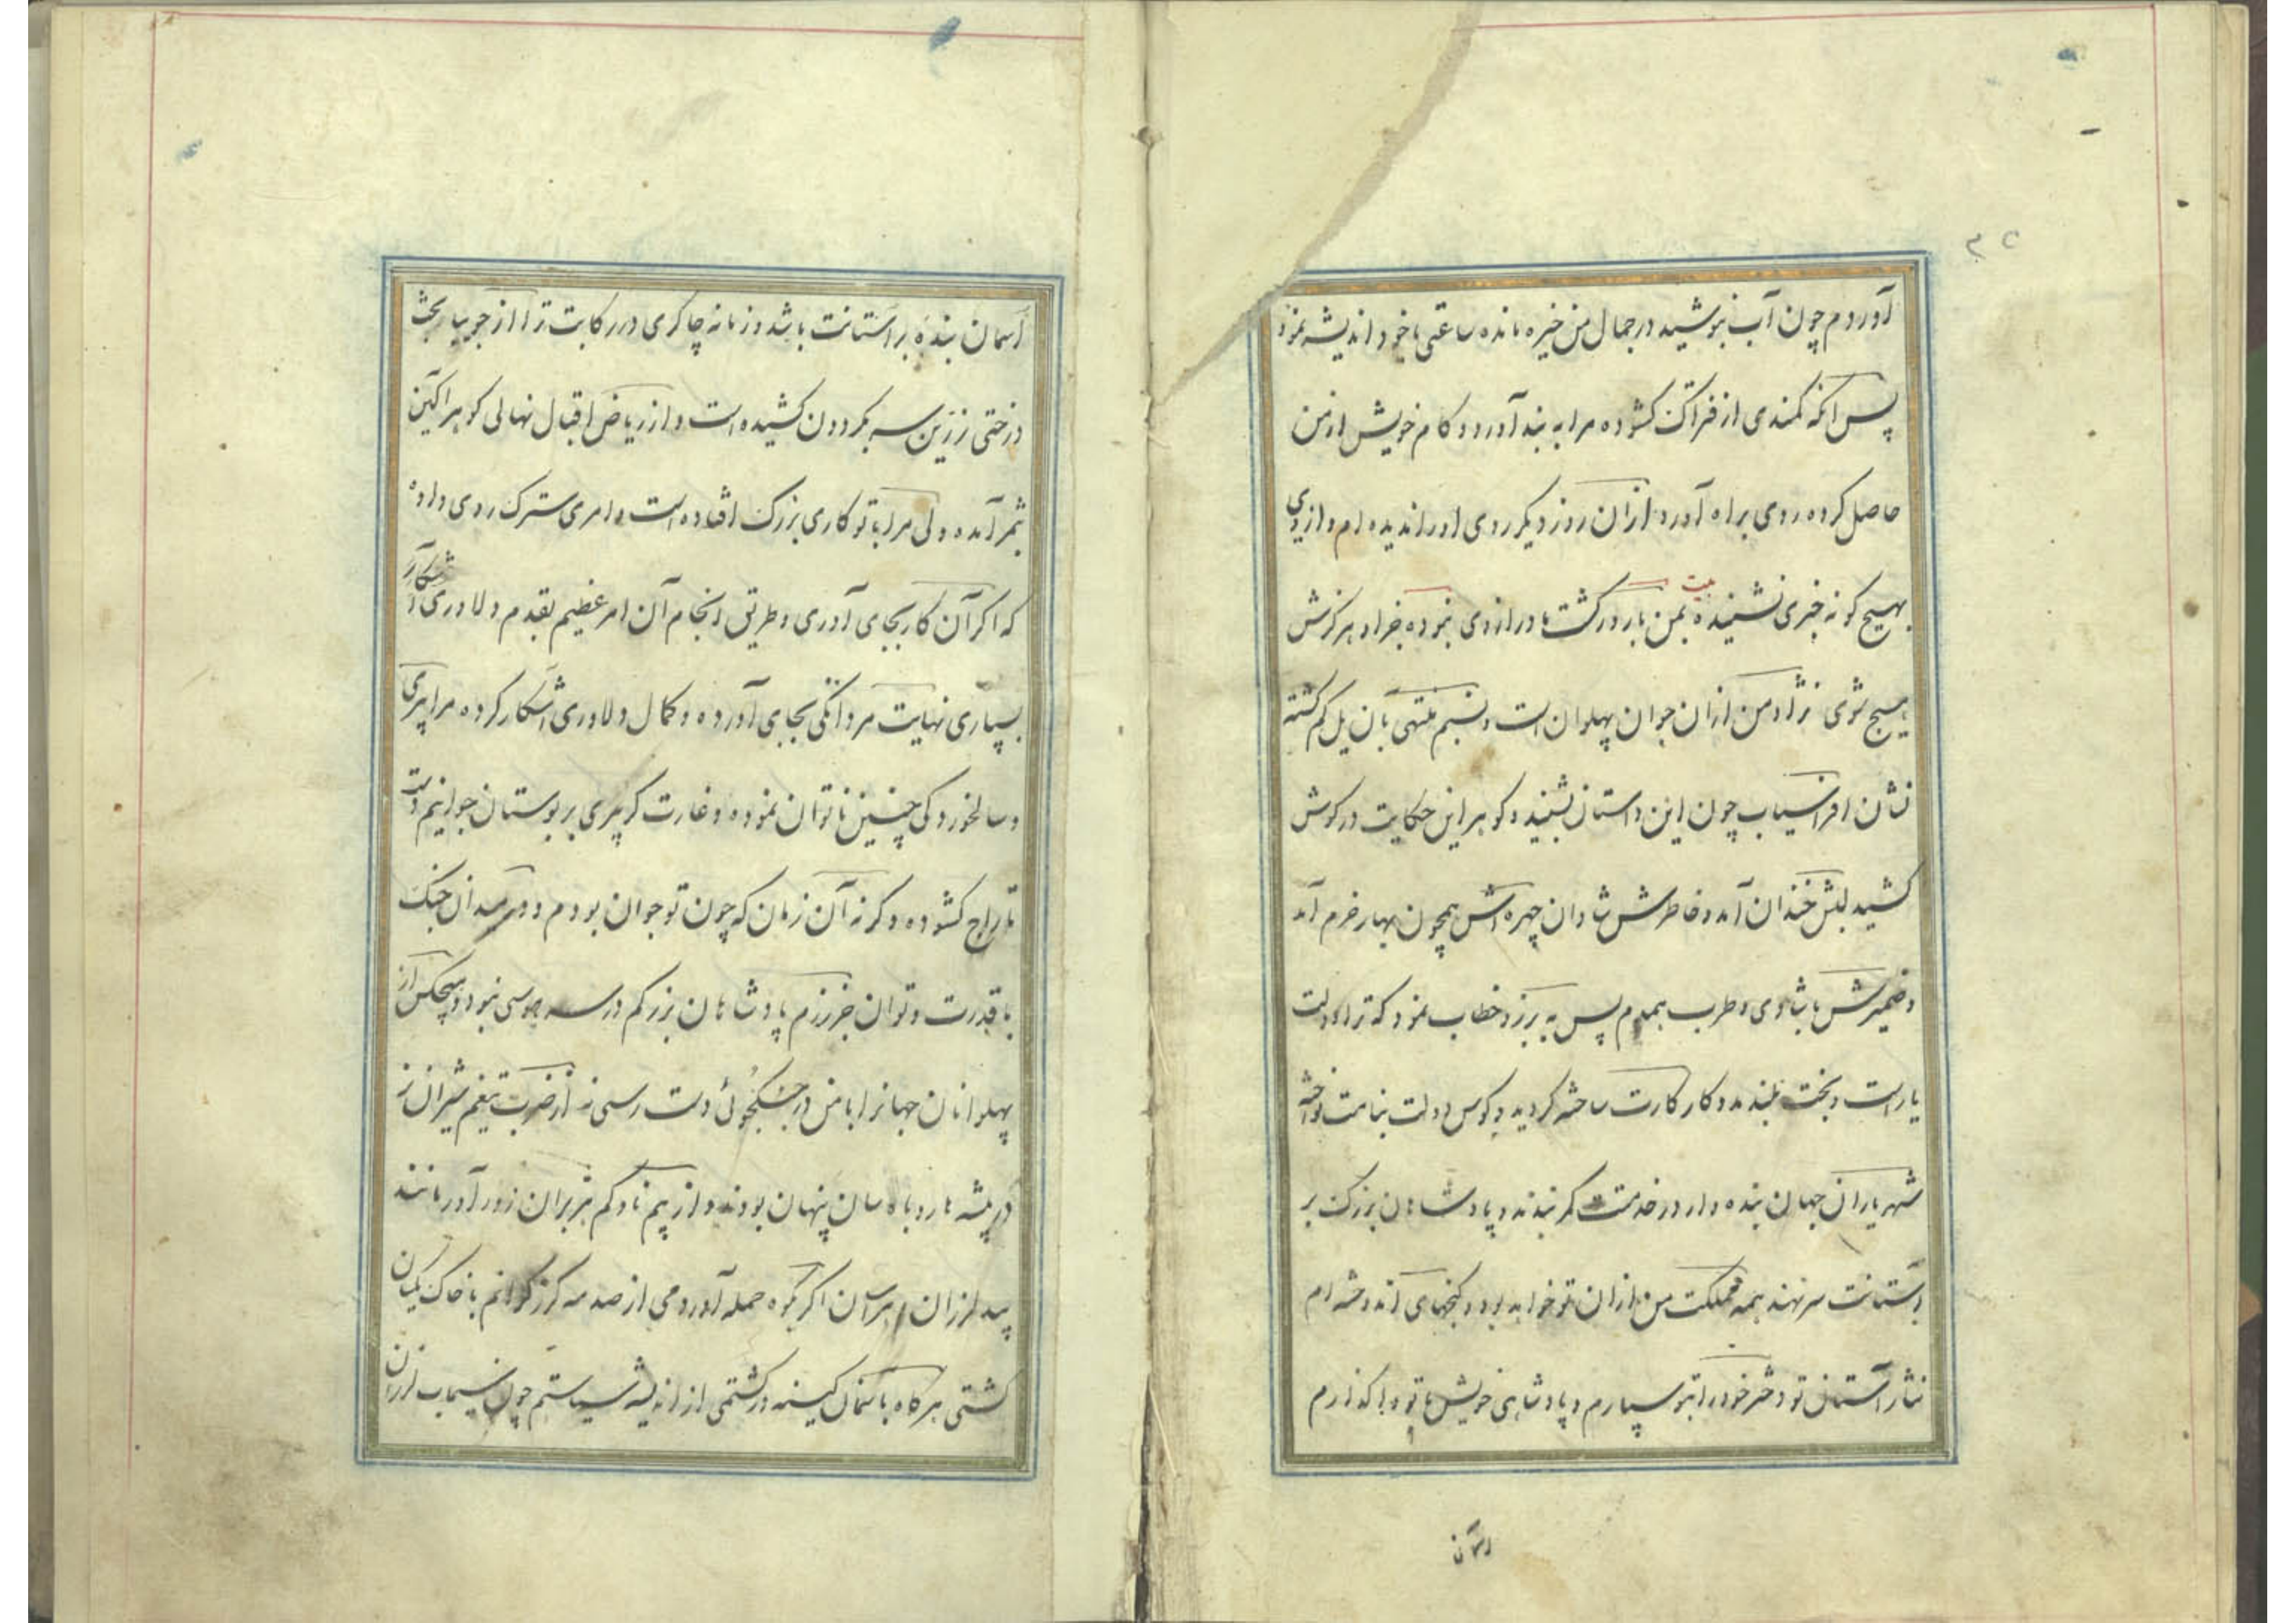 آوردم چون آب بنوشید در جمال من خیره مانده ساعتی با خود اندیشه نمود
پس آنکه کمندی از فتراک کشوده مرا به بند آورد و کام خویش از من
حاصل کرده روی براه آورد از آن روز دیکر روی او را ندیده ام و از وی
بهیچ کونه خبری نشنیده بیت بمن بارور کشت مادر از وی نبوده جز او هرکزش
هیچ شوی نژاد من از آن جوان پهلوان است و نسبم منتهی بآن یل کم کشته
نشان افراسیاب چون این داستان بشنید و کوهر این حکایت در کوش
کشید لبش خندان آمد و خاطرش شادان چهره اش همچون بهار خرم آمد
و ضمیرش با شادی و طرب همدم پس به برزو خطاب نمود که ترا دولت
یار است و بخت بلند مدد کار کارت ساخته کردید و کوس دولت بنامت نواخته
شهریاران جهان بنده وار در خدمتت کمر بندند و پادشاهان بزرک بر
آستانت سر نهند همه مملکت من از آن تو خواهد بود و کنجهای اندوخته ام
نثار آستان تو دختر خود را بتو سپارم و پادشاهی خویش با تو واکذارم
آسمان
آسمان بندهٔ بر آستانت باشد و زمانه چاکری در رکابت ترا از جویبار بخت
درختی زرین سر بکردون کشیده است و از ریاض اقبال نهالی کوهر آکین
بثمر آمده ولی مرا با تو کاری بزرک افتاده است و امری سترک روی داده
که اکر آن کار بجای آوری و طریق انجام آن امر عظیم بقدم دلاوری آشکار
بسپاری نهایت مردانکی بجای آورده و کمال دلاوری آشکار کرده مرا پیری
و سالخوردکی چنین ناتوان نموده و غارت کر پیری بر بوستان جوانیم دست
تاراج کشوده و کرنه آن زمان که چون تو جوان بودم و در میدان جنک
با قدرت و توان جز رزم پادشاهان بزرکم در سر هوسی نبود و هیچکس از
پهلوانان جهانرا با من در جنکجوئی دست رسی نه از ضربت تیغم شیران نر
در بیشه ها روباه سان پنهان بودند و از بیم ناوکم هژبران زور آور مانند
بید لرزان و هراسان اکر بکوه حمله آوردمی از صدمه کرز کرانم با خاک یکسان
کشتی هر کاه با آسمان کینه ور کشتمی از اندیشه سیاستم چون سیماب لرزان